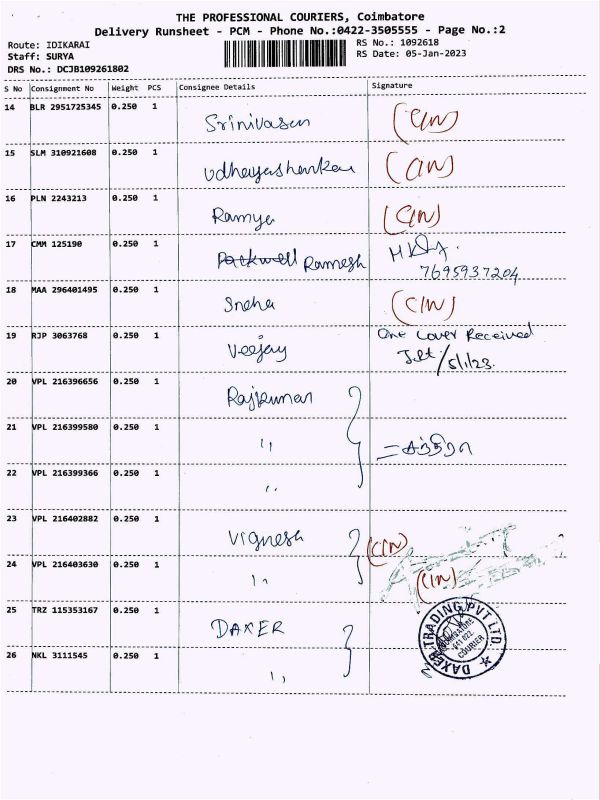 THE PROFESSIONAL COURIERS, Coimbatore
Delivery Runsheet - PCM - Phone No.:0422-3505555 - Page No.:2
Route: IDIKARAI
Staff: SURYA
DRS No.: DCJB109261802
RS No.: 1092618
RS Date: 05-Jan-2023
S No Consignment No Weight PCS Consignee Details Signature
14 BLR 2951725345 0.250 1 Srinivasan
15 SLM 310921608 0.250 1 Udhayashankar
16 PLN 2243213 0.250 1 Ramya
17 CMM 125190 0.250 1 Packwell Ramesh 7695937204
18 MAA 296401495 0.250 1 Sneha
19 RJP 3063768 0.250 1 Veejay One Cover Received
5/1/23.
20 VPL 216396656 0.250 1 Rajkumar
21 VPL 216399580 0.250 1 ,,
22 VPL 216399366 0.250 1 ,,
23 VPL 216402882 0.250 1 Vignesh
24 VPL 216403630 0.250 1 ,,
25 TRZ 115353167 0.250 1 DAXER
26 NKL 3111545 0.250 1 ,,
DAXER TRADING PVT LTD.
COURIER